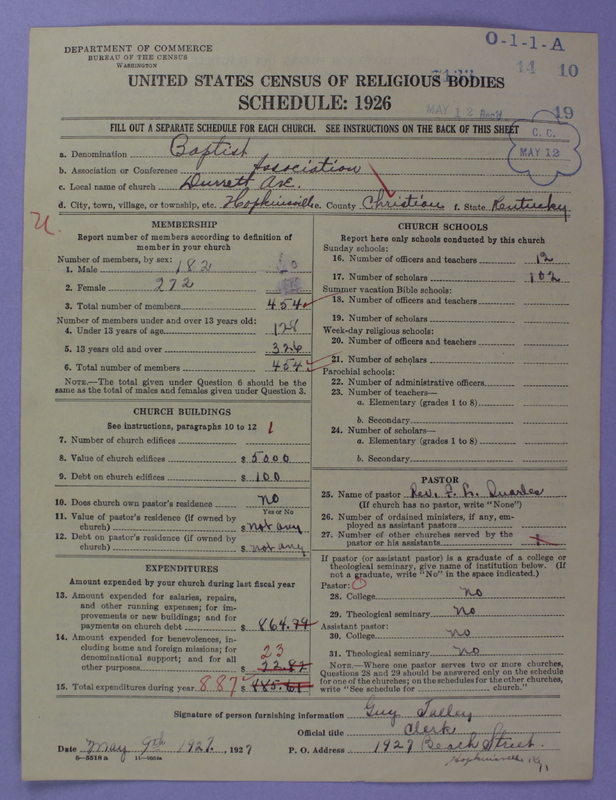 DEPARTMENT OF COMMERCE
BUREAU OF THE CENSUS
WASHINGTON
O-1-1-A
14 10
19
MAY 12 Rec'd
UNITED STATES CENSUS OF RELIGIOUS BODIES
SCHEDULE: 1926
C. C.
MAY 13
FILL OUT A SEPARATE SCHEDULE FOR EACH CHURCH. SEE INSTRUCTIONS ON THE BACK OF THIS SHEET
a. Denomination Baptist
b. Association or Conference Association
c. Local name of church Durrett Ave.
d. City, town, village, or township, etc. Hopkinsville e. County Christian f. State Kentucky
MEMBERSHIP
Report number of members according to definition of member in your church
Number of members, by sex:
1. Male 182
2. Female 272
3. Total number of members 454
Number of members under and over 13 years old:
4. Under 13 years of age 128
5. 13 years old and over 326
6. Total number of members 454
NOTE.—The total given under Question 6 should be the same as the total of males and females given under Question 3.
CHURCH BUILDINGS
See instructions, paragraphs 10 to 12
7. Number of church edifices 1
8. Value of church edifices $ 5000
9. Debt on church edifices $ 100
10. Does church own pastor's residence no
Yes or No
11. Value of pastor's residence (if owned by church) $ not any
12. Debt on pastor's residence (if owned by church) $ not any
EXPENDITURES
Amount expended by your church during last fiscal year
13. Amount expended for salaries, repairs, and other running expenses; for improvements or new buildings; and for payments on church debt $ 864.79
14. Amount expended for benevolences, including home and foreign missions; for denominational support; and for all other purposes $ 22.82
23
15. Total expenditures during year 887 $ 885.61
CHURCH SCHOOLS
Report here only schools conducted by this church
Sunday schools:
16. Number of officers and teachers 12
17. Number of scholars 102
Summer vacation Bible schools:
18. Number of officers and teachers
19. Number of scholars
Week-day religious schools:
20. Number of officers and teachers
21. Number of scholars
Parochial schools:
22. Number of administrative officers
23. Number of teachers—
a. Elementary (grades 1 to 8)
b. Secondary
24. Number of scholars—
a. Elementary (grades 1 to 8)
b. Secondary
PASTOR
25. Name of pastor Rev. P. R. Quarles
(If church has no pastor, write "None")
26. Number of ordained ministers, if any, employed as assistant pastors
27. Number of other churches served by the pastor or his assistants
If pastor (or assistant pastor) is a graduate of a college or theological seminary, give name of institution below. (If not a graduate, write "No" in the space indicated.)
Pastor:
28. College no
29. Theological seminary no
Assistant pastor:
30. College no
31. Theological seminary no
NOTE.—Where one pastor serves two or more churches, Questions 28 and 29 should be answered only on the schedule for one of the churches; on the schedules for the other churches, write "See schedule for church."
Signature of person furnishing information Guy Talley
Official title Clerk
Date May 9th 1927, 1927 P. O. Address 1927 Beach Street.
Hopkinsville Ky
8—5518 a